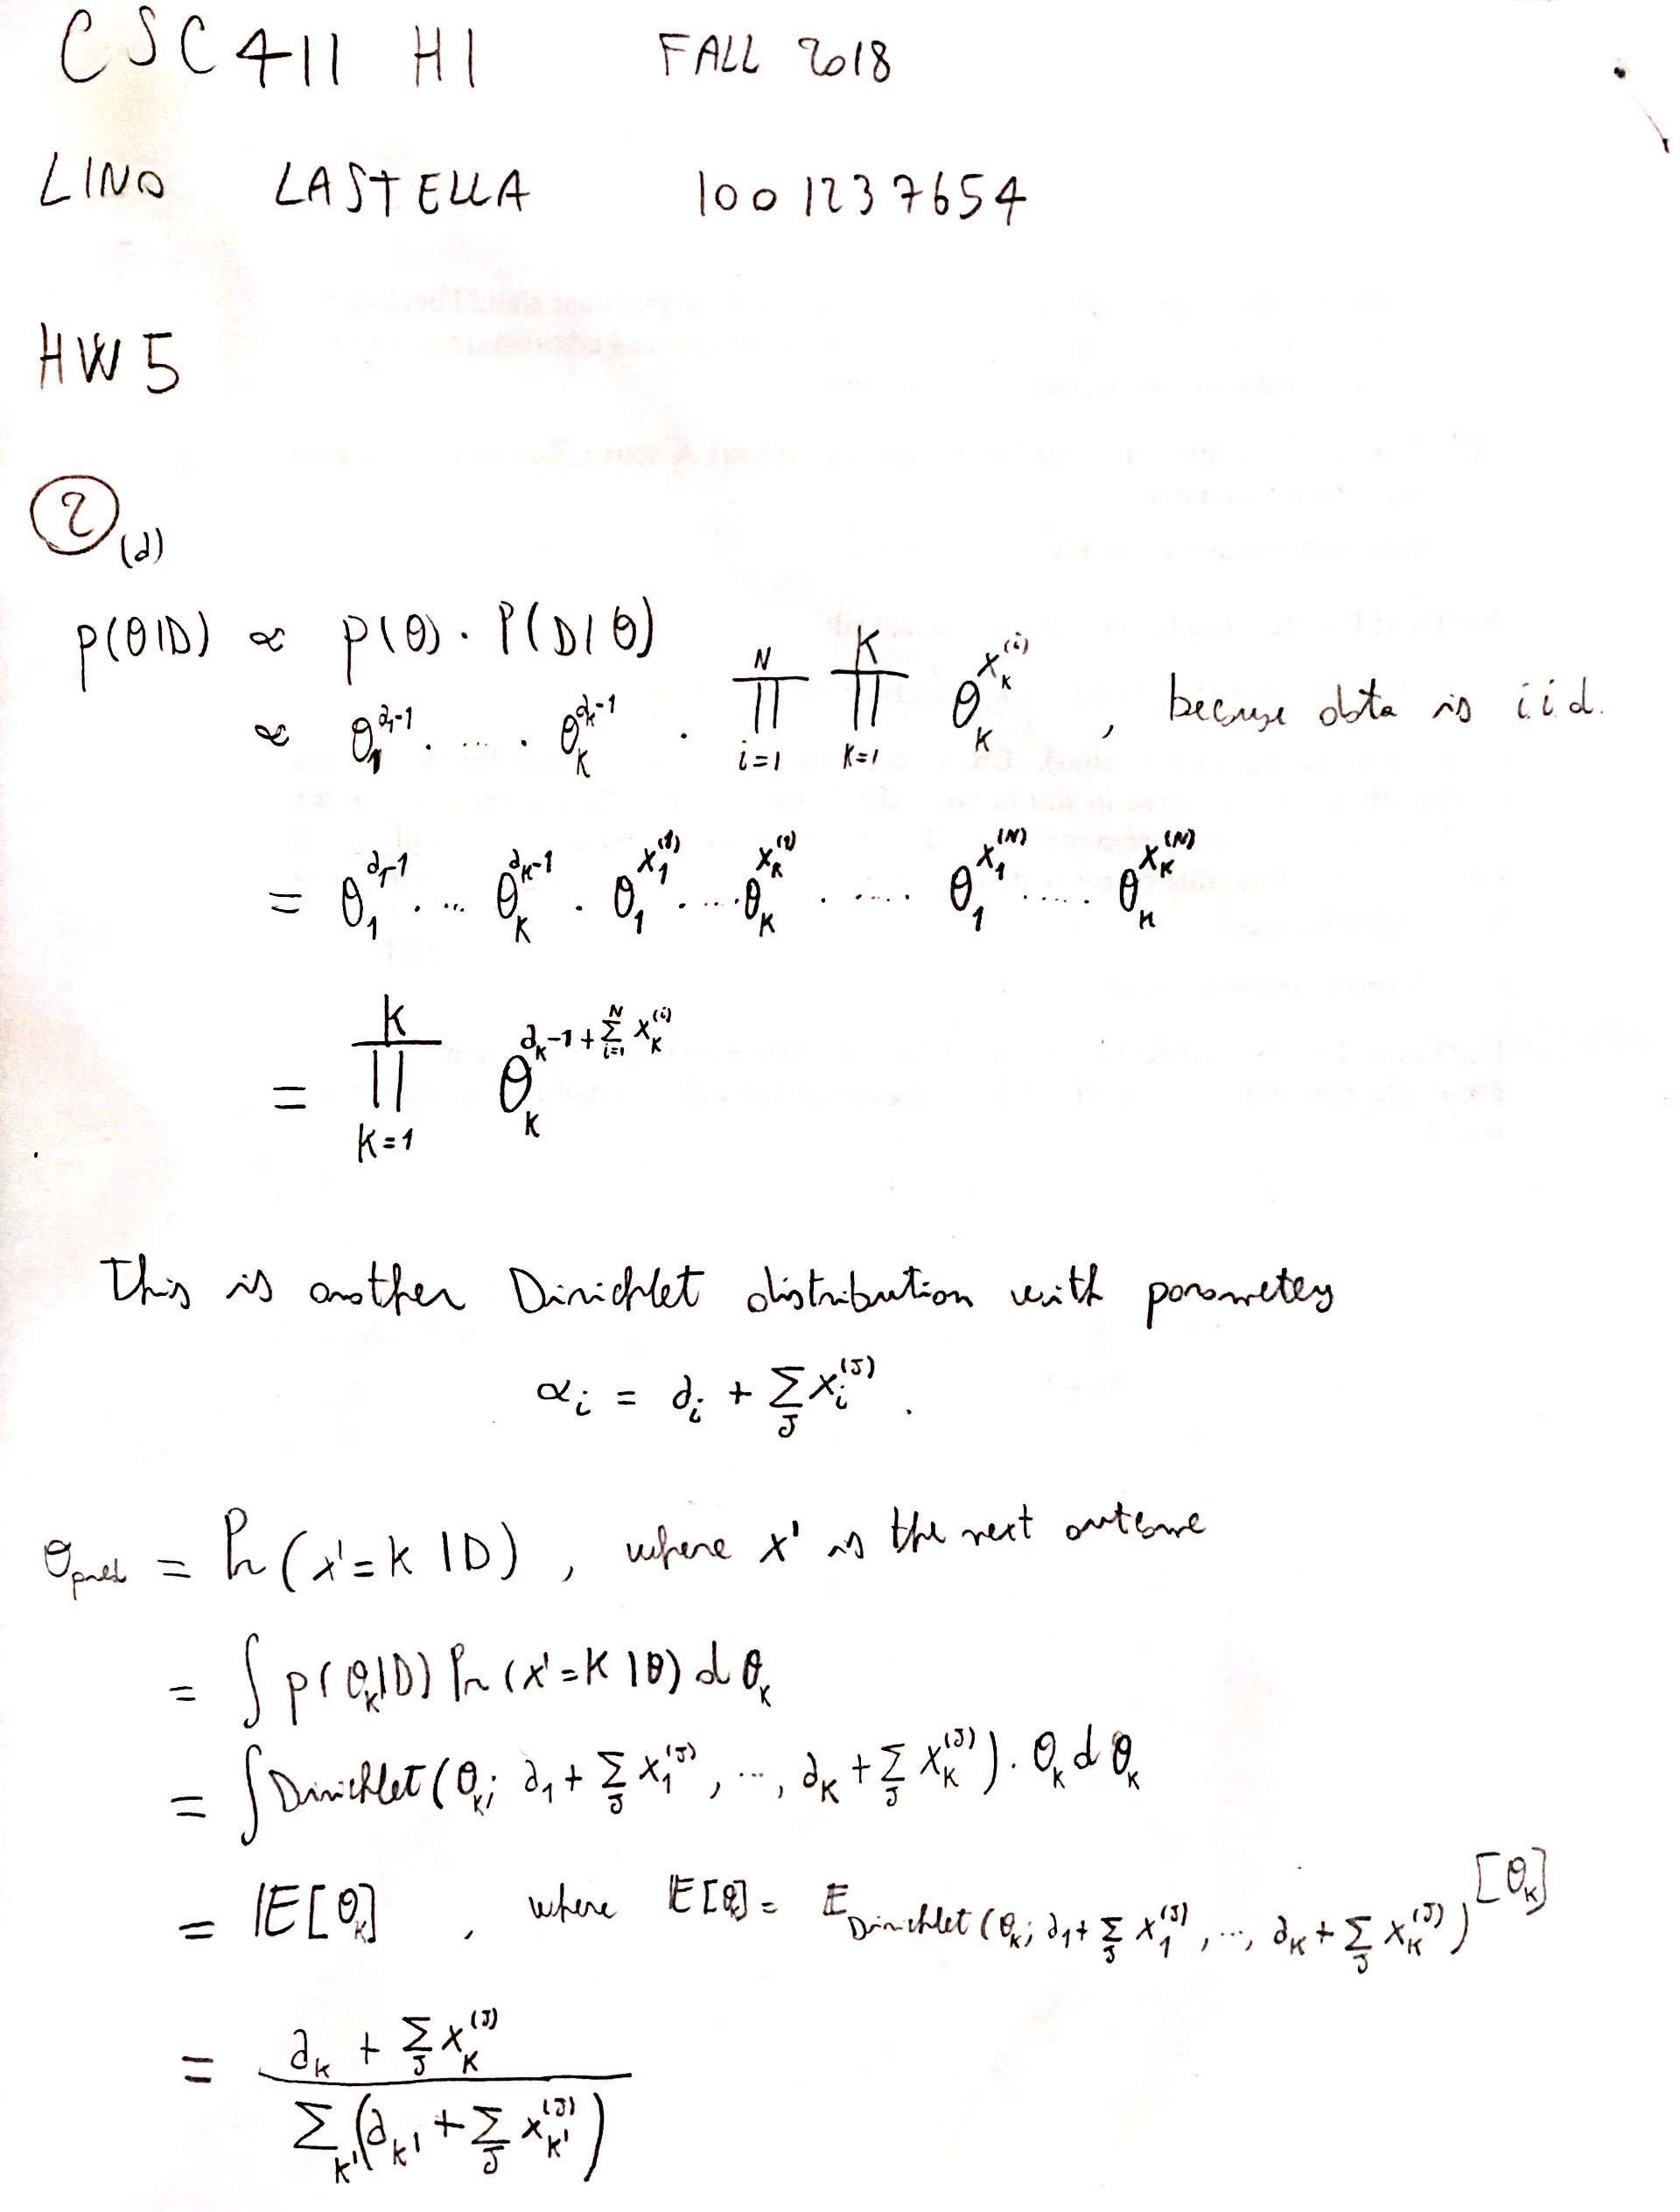 CSC411 H1 FALL 2018
LINO LASTELLA 1001237654
HW5
② (a)
p(θ|D) ∝ p(θ) · P(D|θ)
∝ θ_1^{a_1-1} · ... · θ_K^{a_K-1} · ∏_{i=1}^{N} ∏_{K=1}^{K} θ_K^{X_K^{(i)}} , because data is i.i.d.
= θ_1^{a_1-1} · ... θ_K^{a_K-1} · θ_1^{X_1^{(1)}} · ... · θ_K^{X_K^{(1)}} · .... θ_1^{X_1^{(N)}} ..... θ_K^{X_K^{(N)}}
= ∏_{K=1}^{K} θ_K^{a_K-1+∑_{i=1}^{N} X_K^{(i)}}
This is another Dirichlet distribution with parameters
α_i = a_i + ∑_J X_i^{(J)} .
θ_pred = Pr(x'=K|D) , where x' is the next outcome
= ∫ p(θ_K|D) Pr(x'=K|θ) dθ_K
= ∫ Dirichlet(θ_K; a_1 + ∑_J X_1^{(J)}, ..., a_K + ∑_J X_K^{(J)}) · θ_K dθ_K
= E[θ_K] , where E[θ_K] = E_{Dirichlet(θ_K; a_1+∑_J X_1^{(J)}, ..., a_K+∑_J X_K^{(J)})}[θ_K]
= a_K + ∑_J X_K^{(J)}
∑_{K'}(a_{K'} + ∑_J X_{K'}^{(J)})